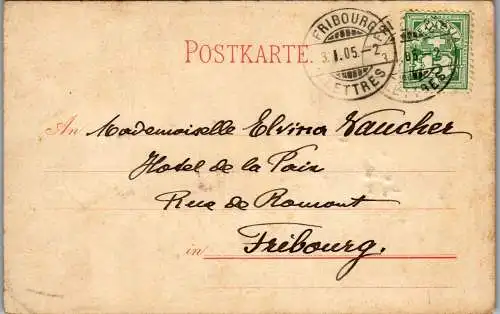 POSTKARTE.
FRIBOURG
3.I.05.-2
LETTRES
An Mademoiselle Elvina Vaucher
Hotel de la Paix
Rue de Romont
in Fribourg.